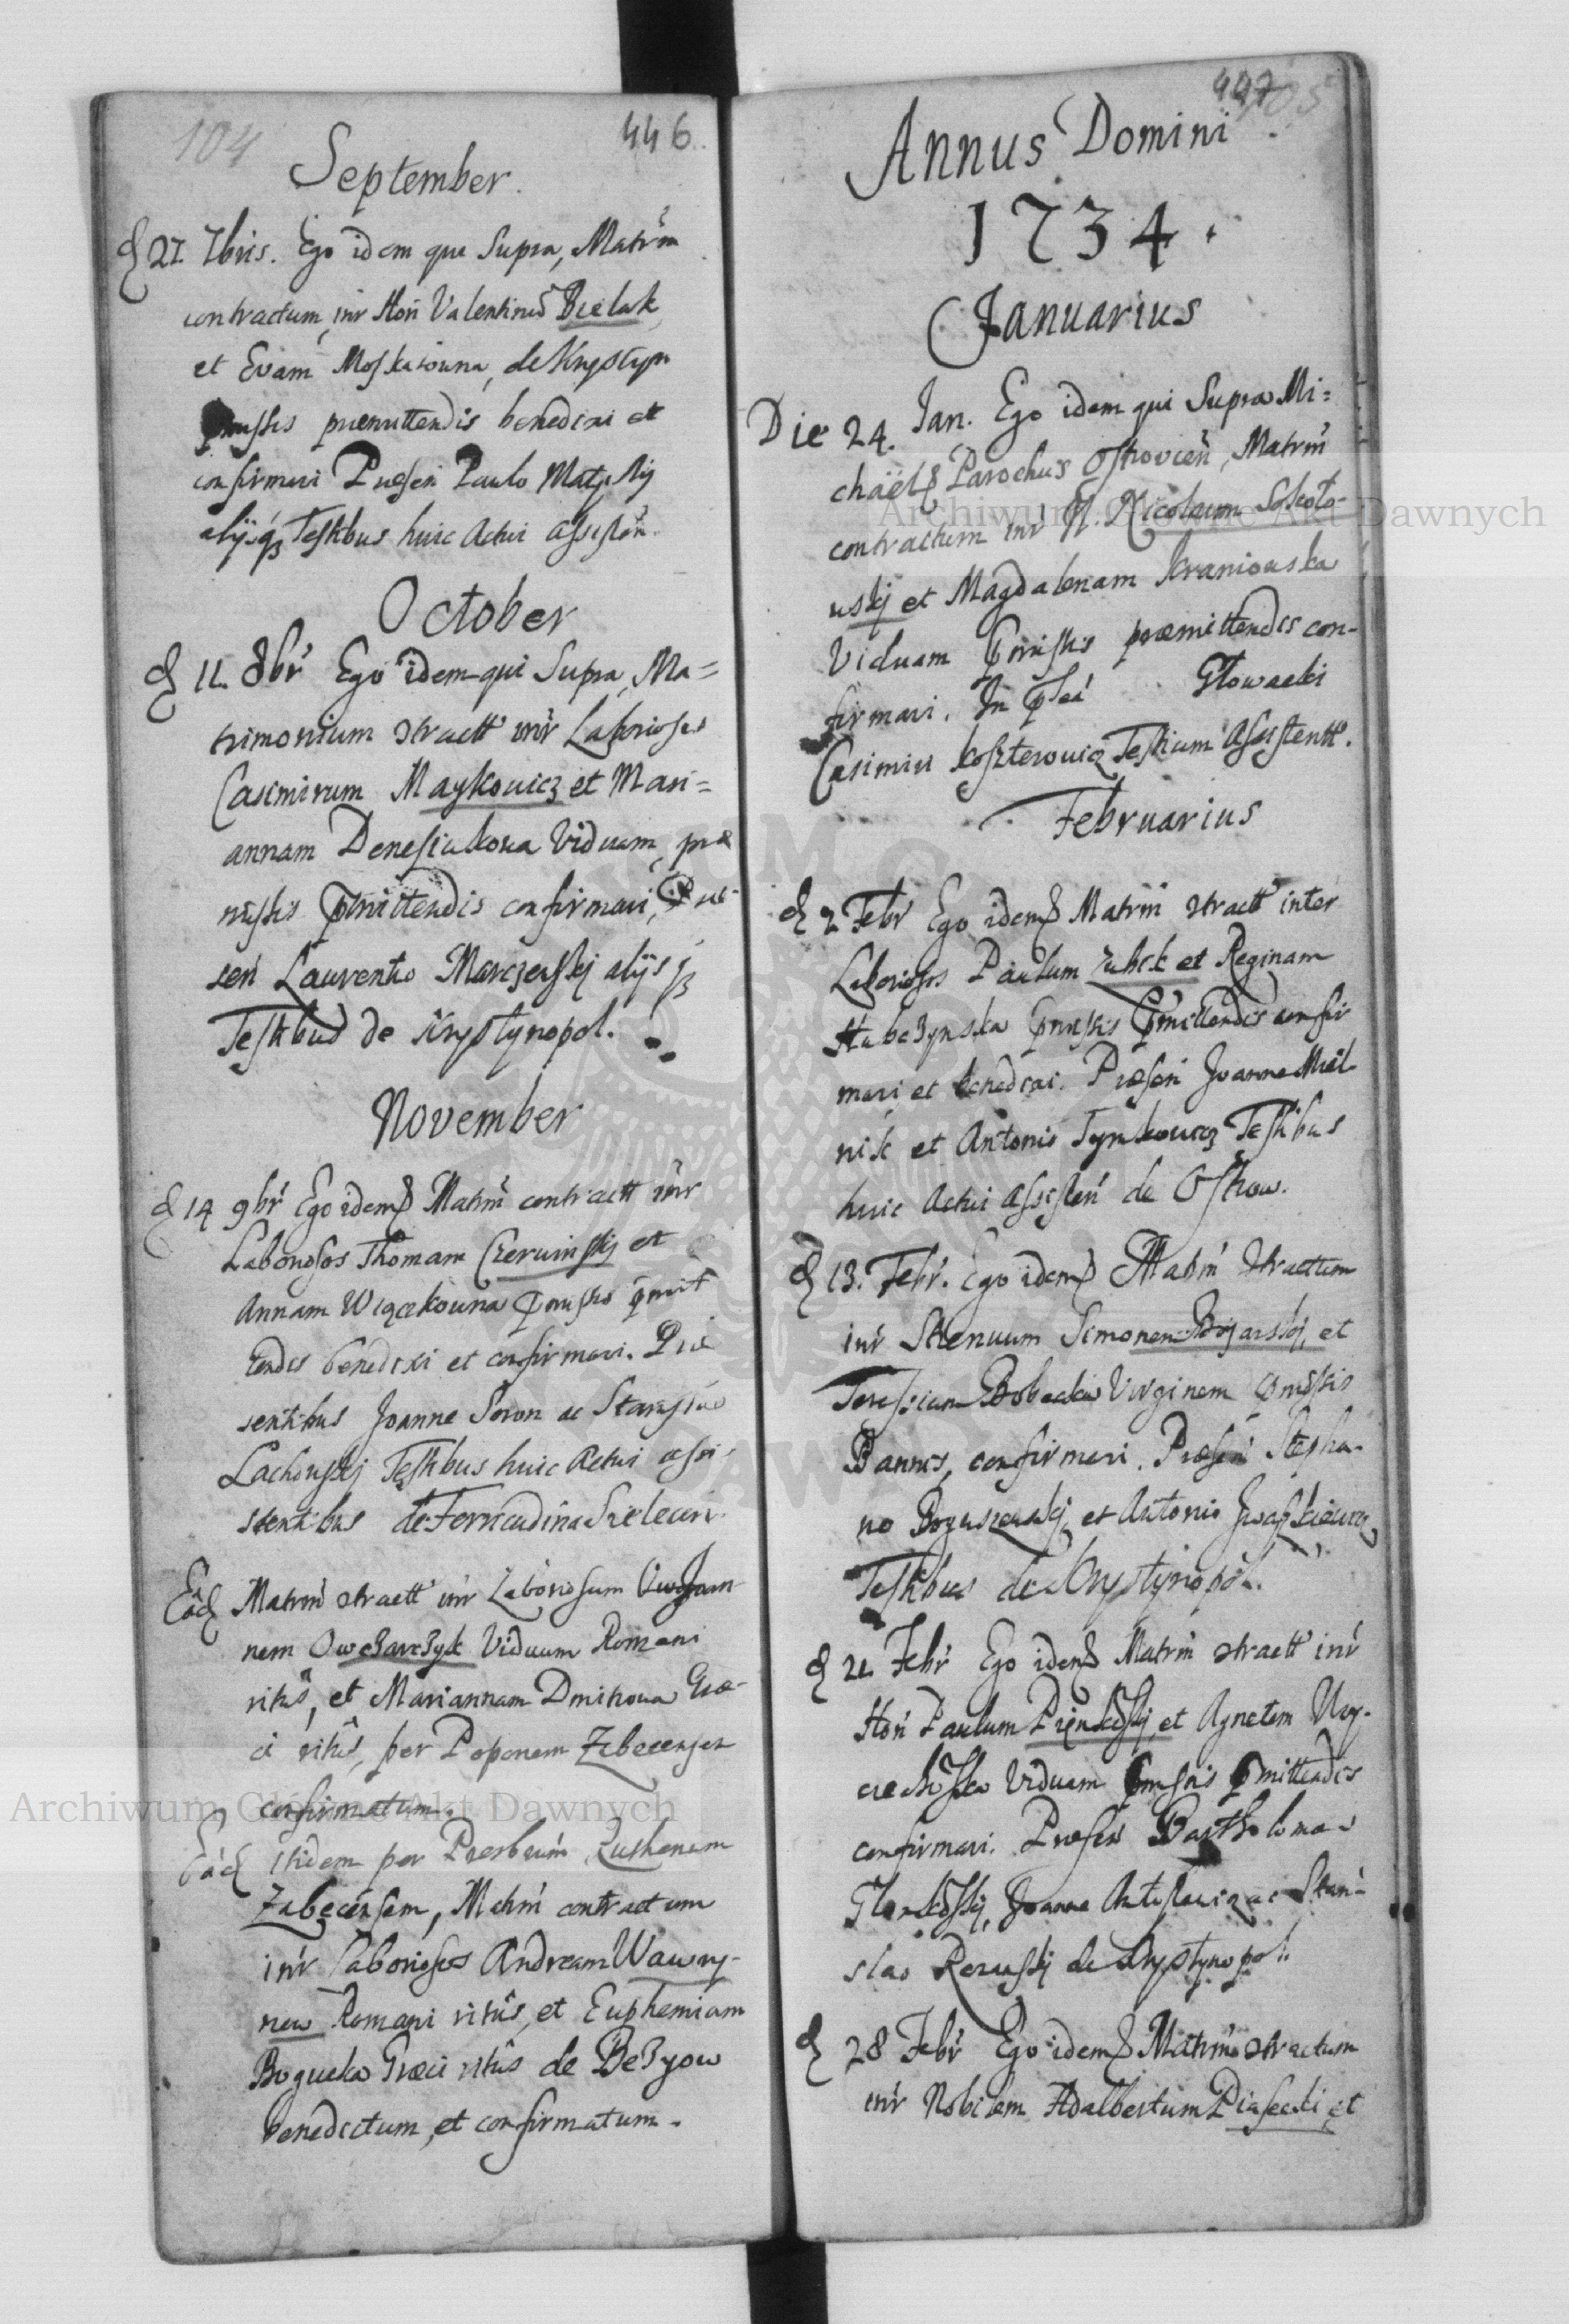 104
446.
September.
d 27. 7bris. Ego idem qui Supra, Matrm
contractum, inr Hon Valentinu Bielak
et Evam Moskarowna, de Krystyn
pmissis praemittendis benedixi et
confirmavi Praesen Paulo
alijsq Testibus huic Actui assisten.
October
d 11. 8br Ego idem qui Supra, Ma=
trimonium ctractt inr Laboriosos
Casimirum Maykowicz et Mari=
annam Denesiukowa Viduam, prae
missis pmittendis confirmavi, Prae
sen Laurentio Marczewskj alijsq
Testibus de Krystynopol.
November
d 14 9br Ego idem Matrm contractt inr
Laboriosos Thomam Czerwinskj et
Annam pmissis pmit
tendis benedixi et confirmavi. Prae
sentibus Joanne Soron ac Stanislao
Lachowskj Testibus huic Actui assi-
stentibus de
Eâd Matrm ctractt inr Laboriosum Joan
nem Owczarczyk Viduum Romani
ritus, et Mariannam Dmitrowa Grae-
ci ritus, per Poponem
confirmatum.
Eâd itidem per Presbrum Ruthenum
Zabecensem, Matrm contractum
inr Laboriosos Andream Wawry-
now Romani ritus, et Euphemiam
Bogucka Graeci ritus de Bezyow
benedictum, et confirmatum.
447
105
Annus Domini
1734.
Januarius
Die 24. Jan. Ego idem qui Supra Mi=
chaël Parochus Ostrovien, Matrm
contractum inr G. Nicolaum Sokolo-
wskj et Magdalenam Kraniowska
Viduam pmissis praemittendis con-
firmavi. In pseâ Głowacki
Casimiri Koszterowicz Testium Assistentt.
Februarius
d 2 Febr Ego idem Matrm ctractt inter
Laboriosos Paulum Zubek et Reginam
Hubczynska pmissis pmittendis confir
mavi et benedixi. Praesen Joanne Miel
nik et Antonio Tynkowicz Testibus
huic Actui Assisten de Ostrow.
d 13. Febr. Ego idem Matrm Ctractum
inr Strenuum Simonem Bojarskj, et
Teressiam Bobecka Virginem pmissis
Bannis, confirmavi. Praesen Stepha-
no Boguszewskj, et Antonio Iwaszkiewicz
Testibus de Krystynopol.
d 21. Febr Ego idem Matrm ctractt inr
Hon Paulum et Agnetem
Viduam pmissis pmittendis
confirmavi. Praesen Bartholomaeo
Joanne ac Stani-
slao de Krystynopol.
d 28 Febr Ego idem Matrm ctractum
inr Nobilem Adalbertum Piasecki et
Archiwum Główne Akt Dawnych
Archiwum Główne Akt Dawnych